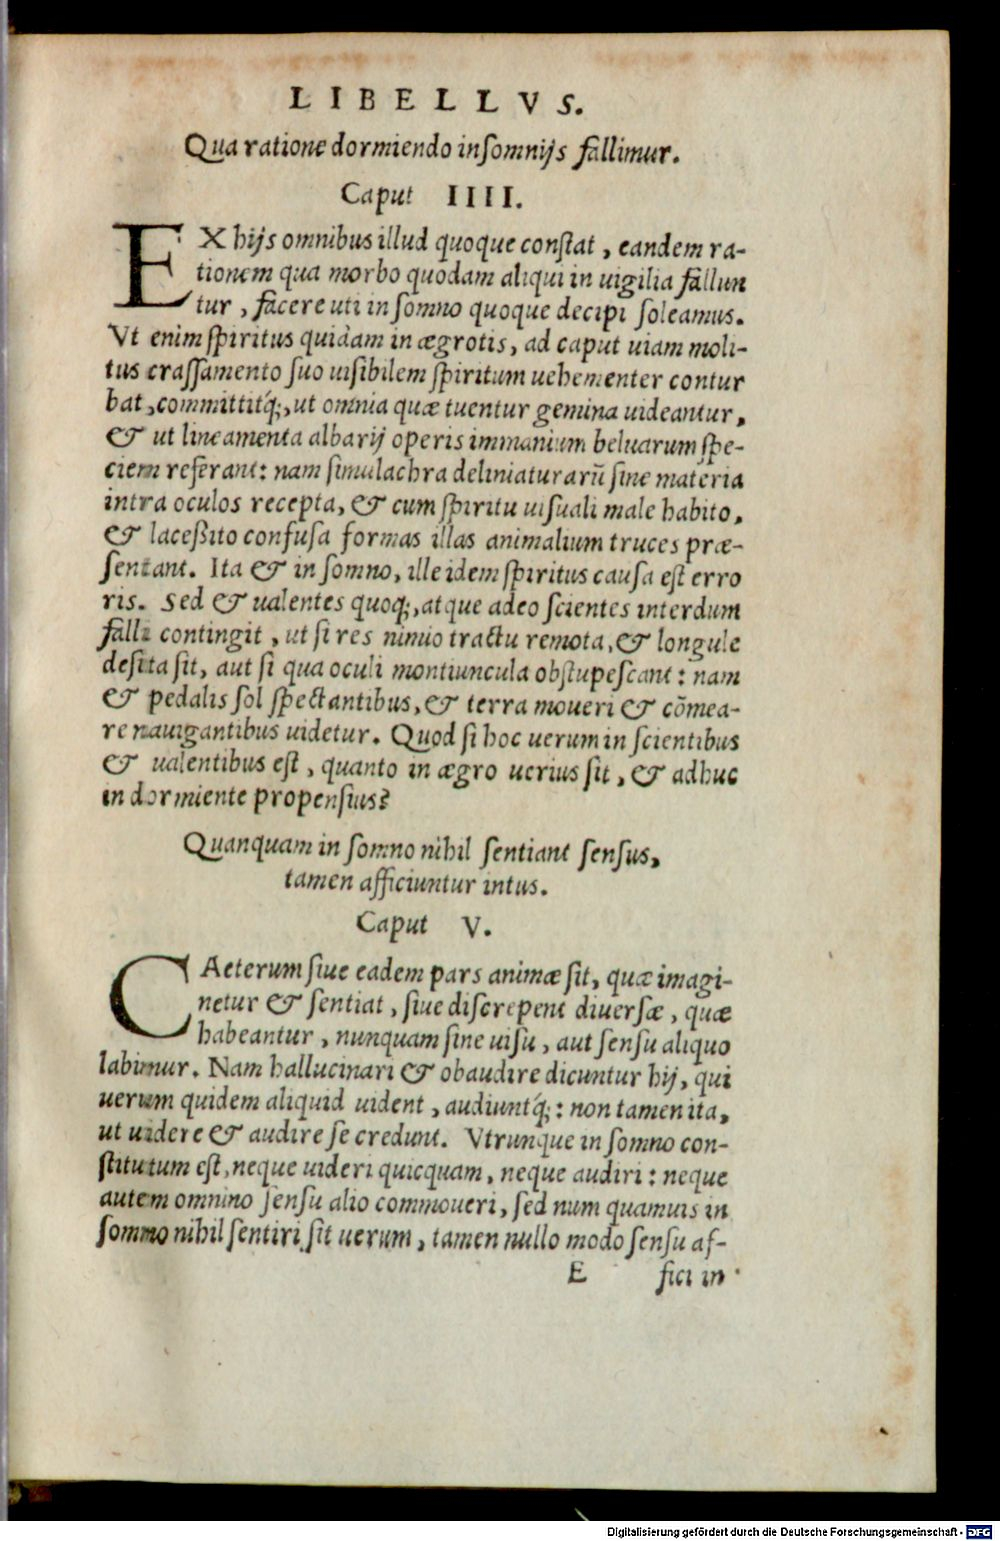 LIBELLVS.
Qua ratione dormiendo inſomnijs fallimur.
Caput IIII.
EX hijs omnibus illud quoque conſtat, eandem ra-
tionem qua morbo quodam aliqui in uigilia fallun
tur, facere uti in ſomno quoque decipi ſoleamus.
Vt enim ſpiritus quidam in ægrotis, ad caput uiam moli-
tus craſſamento ſuo uiſibilem ſpiritum uehementer contur
bat, committitq́;, ut omnia quæ tuentur gemina uideantur,
& ut lineamenta albarij operis immanium beluarum ſpe-
ciem referant: nam ſimulachra deliniaturarū ſine materia
intra oculos recepta, & cum ſpiritu uiſuali male habito,
& laceßito confuſa formas illas animalium truces præ-
ſentant. Ita & in ſomno, ille idem ſpiritus cauſa eſt erro
ris. Sed & ualentes quoq;, atque adeo ſcientes interdum
falli contingit, ut ſi res nimio tractu remota, & longule
deſita ſit, aut ſi qua oculi montiuncula obſtupeſcant: nam
& pedalis ſol ſpectantibus, & terra moueri & cōmea-
re nauigantibus uidetur. Quod ſi hoc uerum in ſcientibus
& ualentibus eſt, quanto in ægro uerius ſit, & adhuc
in dormiente propenſius?
Quanquam in ſomno nihil ſentiant ſenſus,
tamen afficiuntur intus.
Caput V.
CAeterum ſiue eadem pars animæ ſit, quæ imagi-
netur & ſentiat, ſiue diſcrepent diuerſæ, quæ
habeantur, nunquam ſine uiſu, aut ſenſu aliquo
labimur. Nam hallucinari & obaudire dicuntur hij, qui
uerum quidem aliquid uident, audiuntq́;: non tamen ita,
ut uidere & audire ſe credunt. Vtrunque in ſomno con-
ſtitutum eſt, neque uideri quicquam, neque audiri: neque
autem omnino ſenſu alio commoueri, ſed num quamuis in
ſomno nihil ſentiri ſit uerum, tamen nullo modo ſenſu af-
E fici in
Digitalisierung gefördert durch die Deutsche Forschungsgemeinschaft - DFG